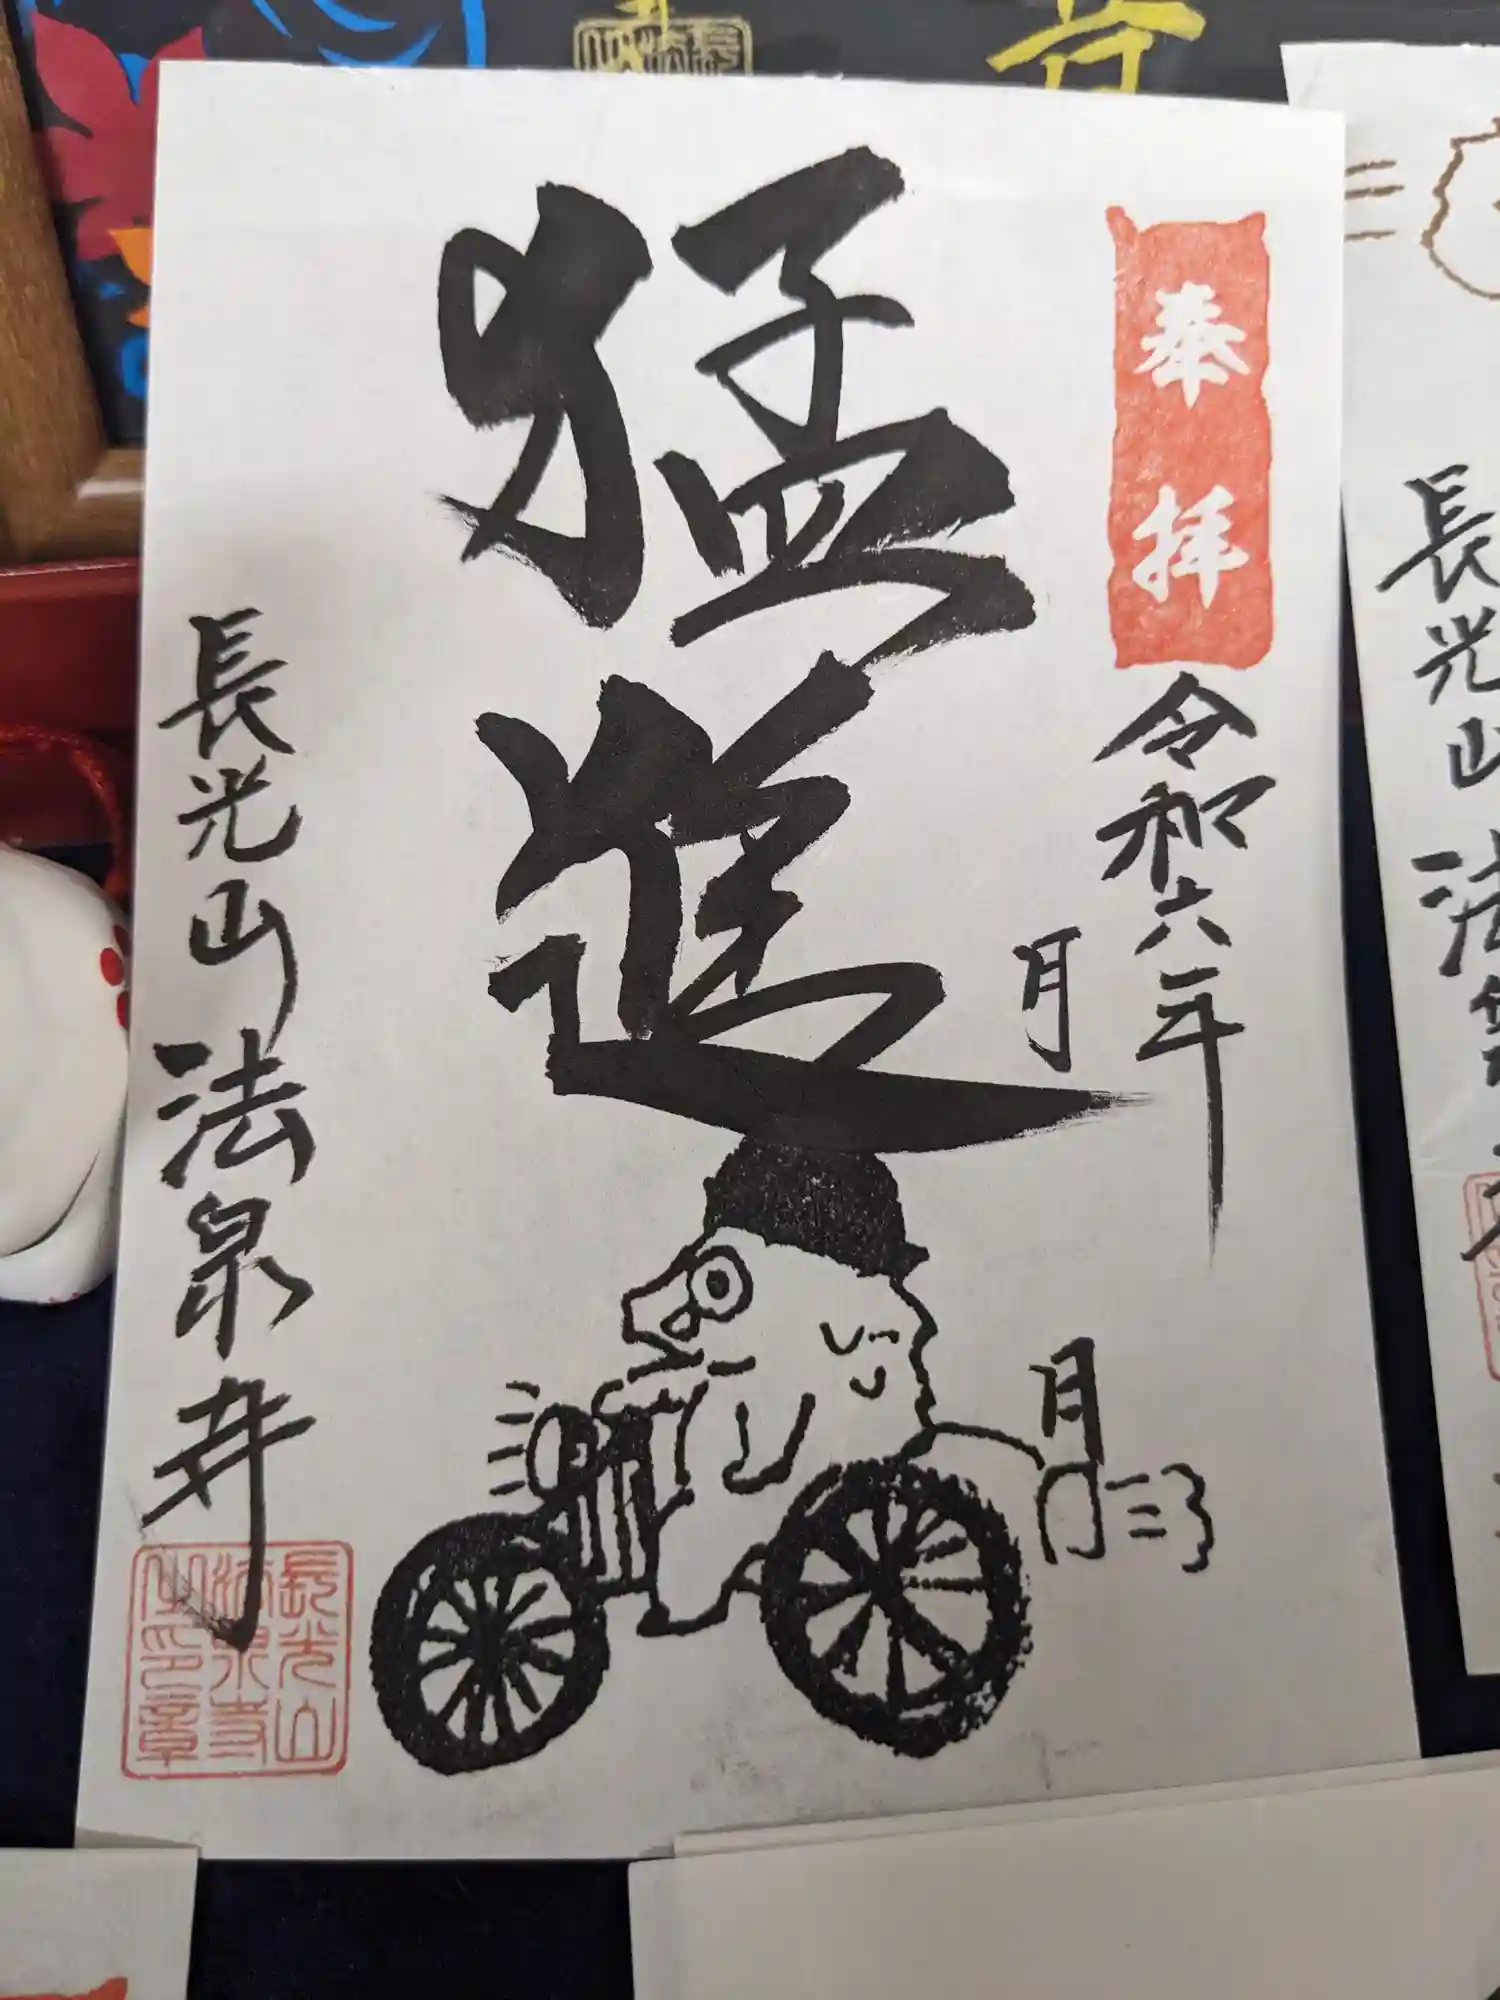 奉拝
令和六年
月
月
猛進
長光山法泉寺
長光山
法泉寺
之印章
長光山法